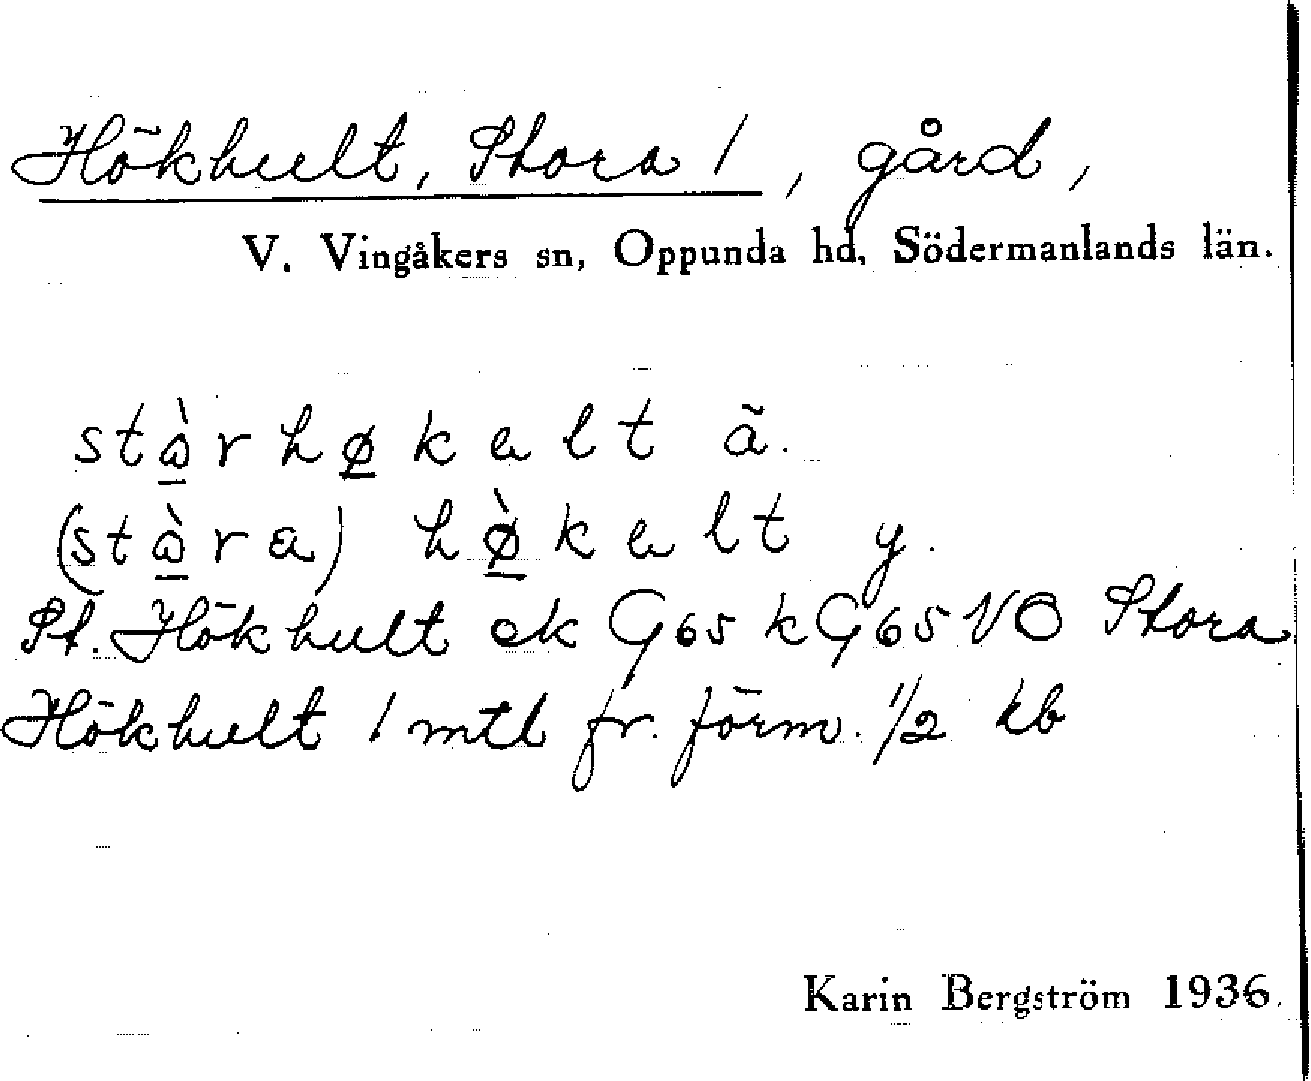 Hökhult, Stora 1, gård,
V. Vingåkers sn, Oppunda hd, Södermanlands län.
stàrhøkalt ã.
(stàra) hø̀kalt y.
St. Hökhult ek G65 k G65 VÖ Stora
Hökhult 1 mtl fr. förm. 1/2 kb
Karin Bergström 1936.